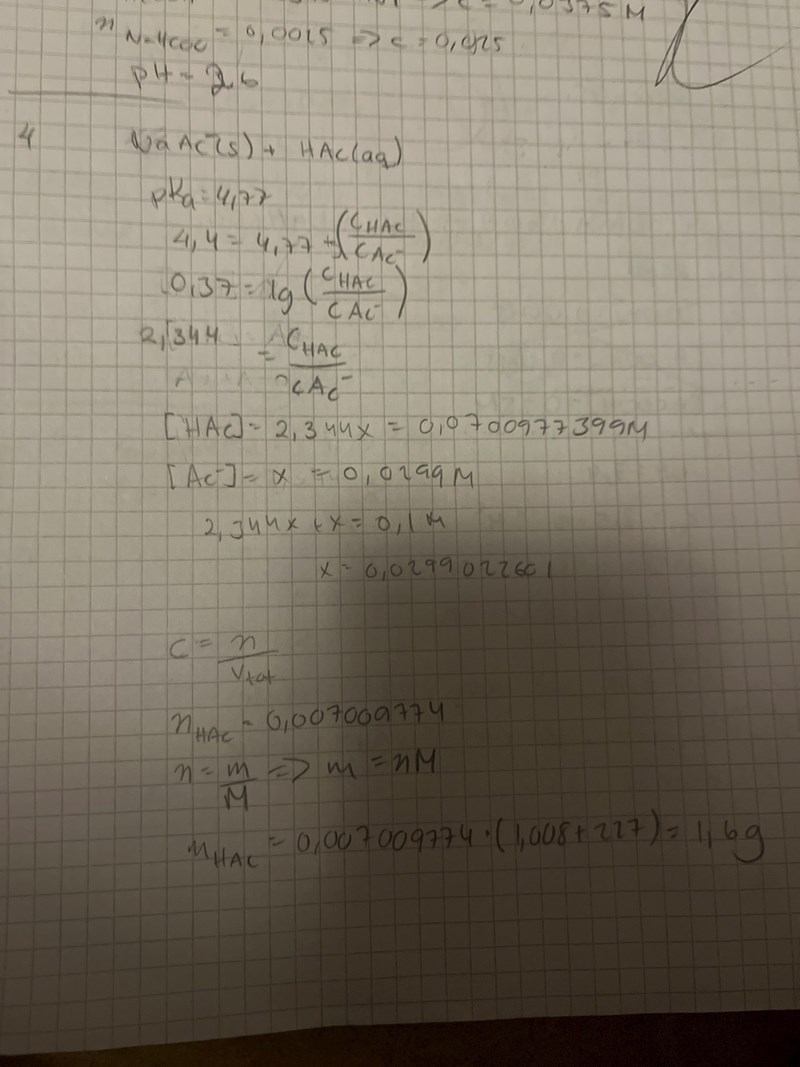 => c = 0,0375 M
n = 0,0025 => c = 0,025
pH = 2,6
4 NaAc(s) + HAc(aq)
pKa = 4,77
4,4 = 4,77 + (cHAc/cAc-)
0,37 = lg (cHAc/cAc-)
2,344 = cHAc/cAc-
[HAc] = 2,344x = 0,0700977399M
[Ac-] = x = 0,0299M
2,344x + x = 0,1 M
x = 0,0299022601
c = n/Vtot
nHAc = 0,007009774
n = m/M => m = nM
mHAc = 0,007009774 · (1,008+227) = 1,6g